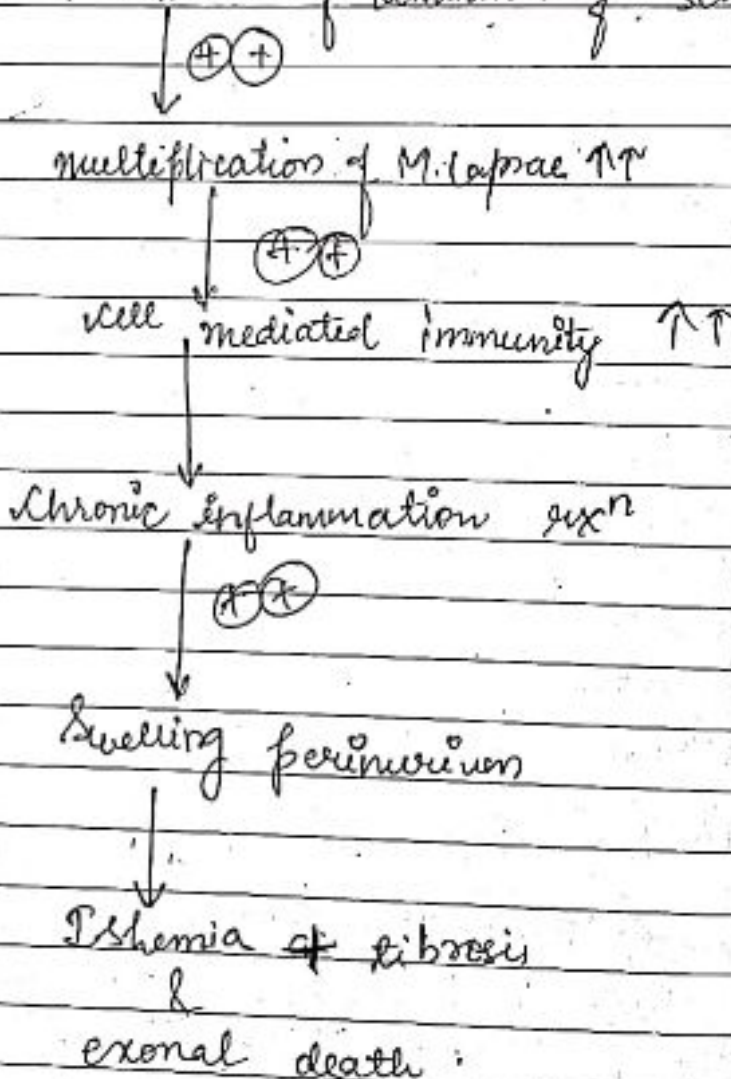 ⊕⊕
multiplication of M. lapsae ↑↑
⊕⊕
cell mediated immunity ↑↑
Chronic inflammation rxⁿ
⊕⊕
Swelling perinurium
Ishemia of fibrosis
&
exonal death :